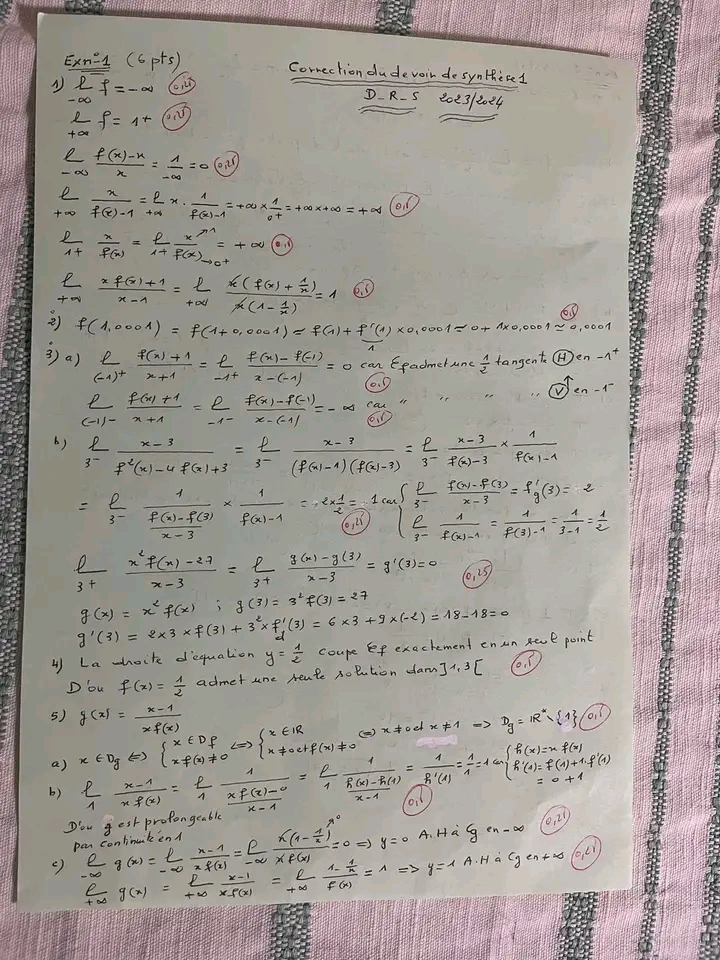 Exn°1 (6 pts)
Correction du devoir de synthèse 1
D_R_S 2023/2024
1) l -∞ f = -∞ 0,25
l +∞ f = 1+ 0,25
l -∞ (f(x)-x)/x = 1/-∞ = 0 0,25
l +∞ x/(f(x)-1) = l +∞ x . 1/(f(x)-1) = +∞ × 1/0+ = +∞ × +∞ = +∞ 0,5
l 1+ x/f(x) = l 1+ x→1/f(x)→0+ = +∞ 0,5
l +∞ (x f(x)+1)/(x-1) = l +∞ x(f(x) + 1/x)/x(1 - 1/x) = 1 0,5
2) f(1,0001) = f(1+0,0001) ≈ f(1) + f'(1) × 0,0001 ≈ 0 + 1×0,0001 ≈ 0,0001 0,5
1
3) a) l (-1)+ (f(x)+1)/(x+1) = l -1+ (f(x)-f(-1))/(x-(-1)) = 0 car ζf admet une 1/2 tangente (H) en -1+ 0,5
l (-1)- (f(x)+1)/(x+1) = l -1- (f(x)-f(-1))/(x-(-1)) = -∞ car " " " " (V)↑ en -1- 0,5
b) l 3- (x-3)/(f²(x)-4f(x)+3) = l 3- (x-3)/((f(x)-1)(f(x)-3)) = l 3- (x-3)/(f(x)-3) × 1/(f(x)-1)
= l 3- 1/((f(x)-f(3))/(x-3)) × 1/(f(x)-1) = -2×1/2 = -1 car { l 3- (f(x)-f(3))/(x-3) = f'g(3) = -2 0,25
l 3- 1/(f(x)-1) = 1/(f(3)-1) = 1/(3-1) = 1/2
l 3+ (x² f(x) - 27)/(x-3) = l 3+ (g(x)-g(3))/(x-3) = g'(3) = 0 0,25
g(x) = x² f(x) ; g(3) = 3² f(3) = 27
g'(3) = 2×3 × f(3) + 3² × f'd(3) = 6×3 + 9×(-2) = 18-18 = 0
4) La droite d'équation y = 1/2 coupe ζf exactement en un seul point
D'où f(x) = 1/2 admet une seule solution dans ]1,3[ 0,5
5) g(x) = (x-1)/(x f(x))
a) x ∈ Dg ⇔ { x ∈ Df x f(x) ≠ 0 ⇔ { x ∈ IR x ≠ 0 et f(x) ≠ 0 ⇔ x ≠ 0 et x ≠ 1 ⇒ Dg = IR* \ {1} 0,5
b) l 1 (x-1)/(x f(x)) = l 1 1/((x f(x) - 0)/(x-1)) = l 1 1/((h(x)-h(1))/(x-1)) = 1/h'(1) = 1/1 = 1 car { h(x) = x f(x) h'(1) = f(1) + 1.f'(1) = 0 + 1 0,5
D'où g est prolongeable
par continuité en 1
c) l -∞ g(x) = l -∞ (x-1)/(x f(x)) = l -∞ x(1 - 1/x)→0/x f(x) = 0 ⇒ y = 0 A.H à ζg en -∞ 0,25
l +∞ g(x) = l +∞ (x-1)/(x f(x)) = l +∞ (1 - 1/x)/f(x) = 1 ⇒ y = 1 A.H à ζg en +∞ 0,25